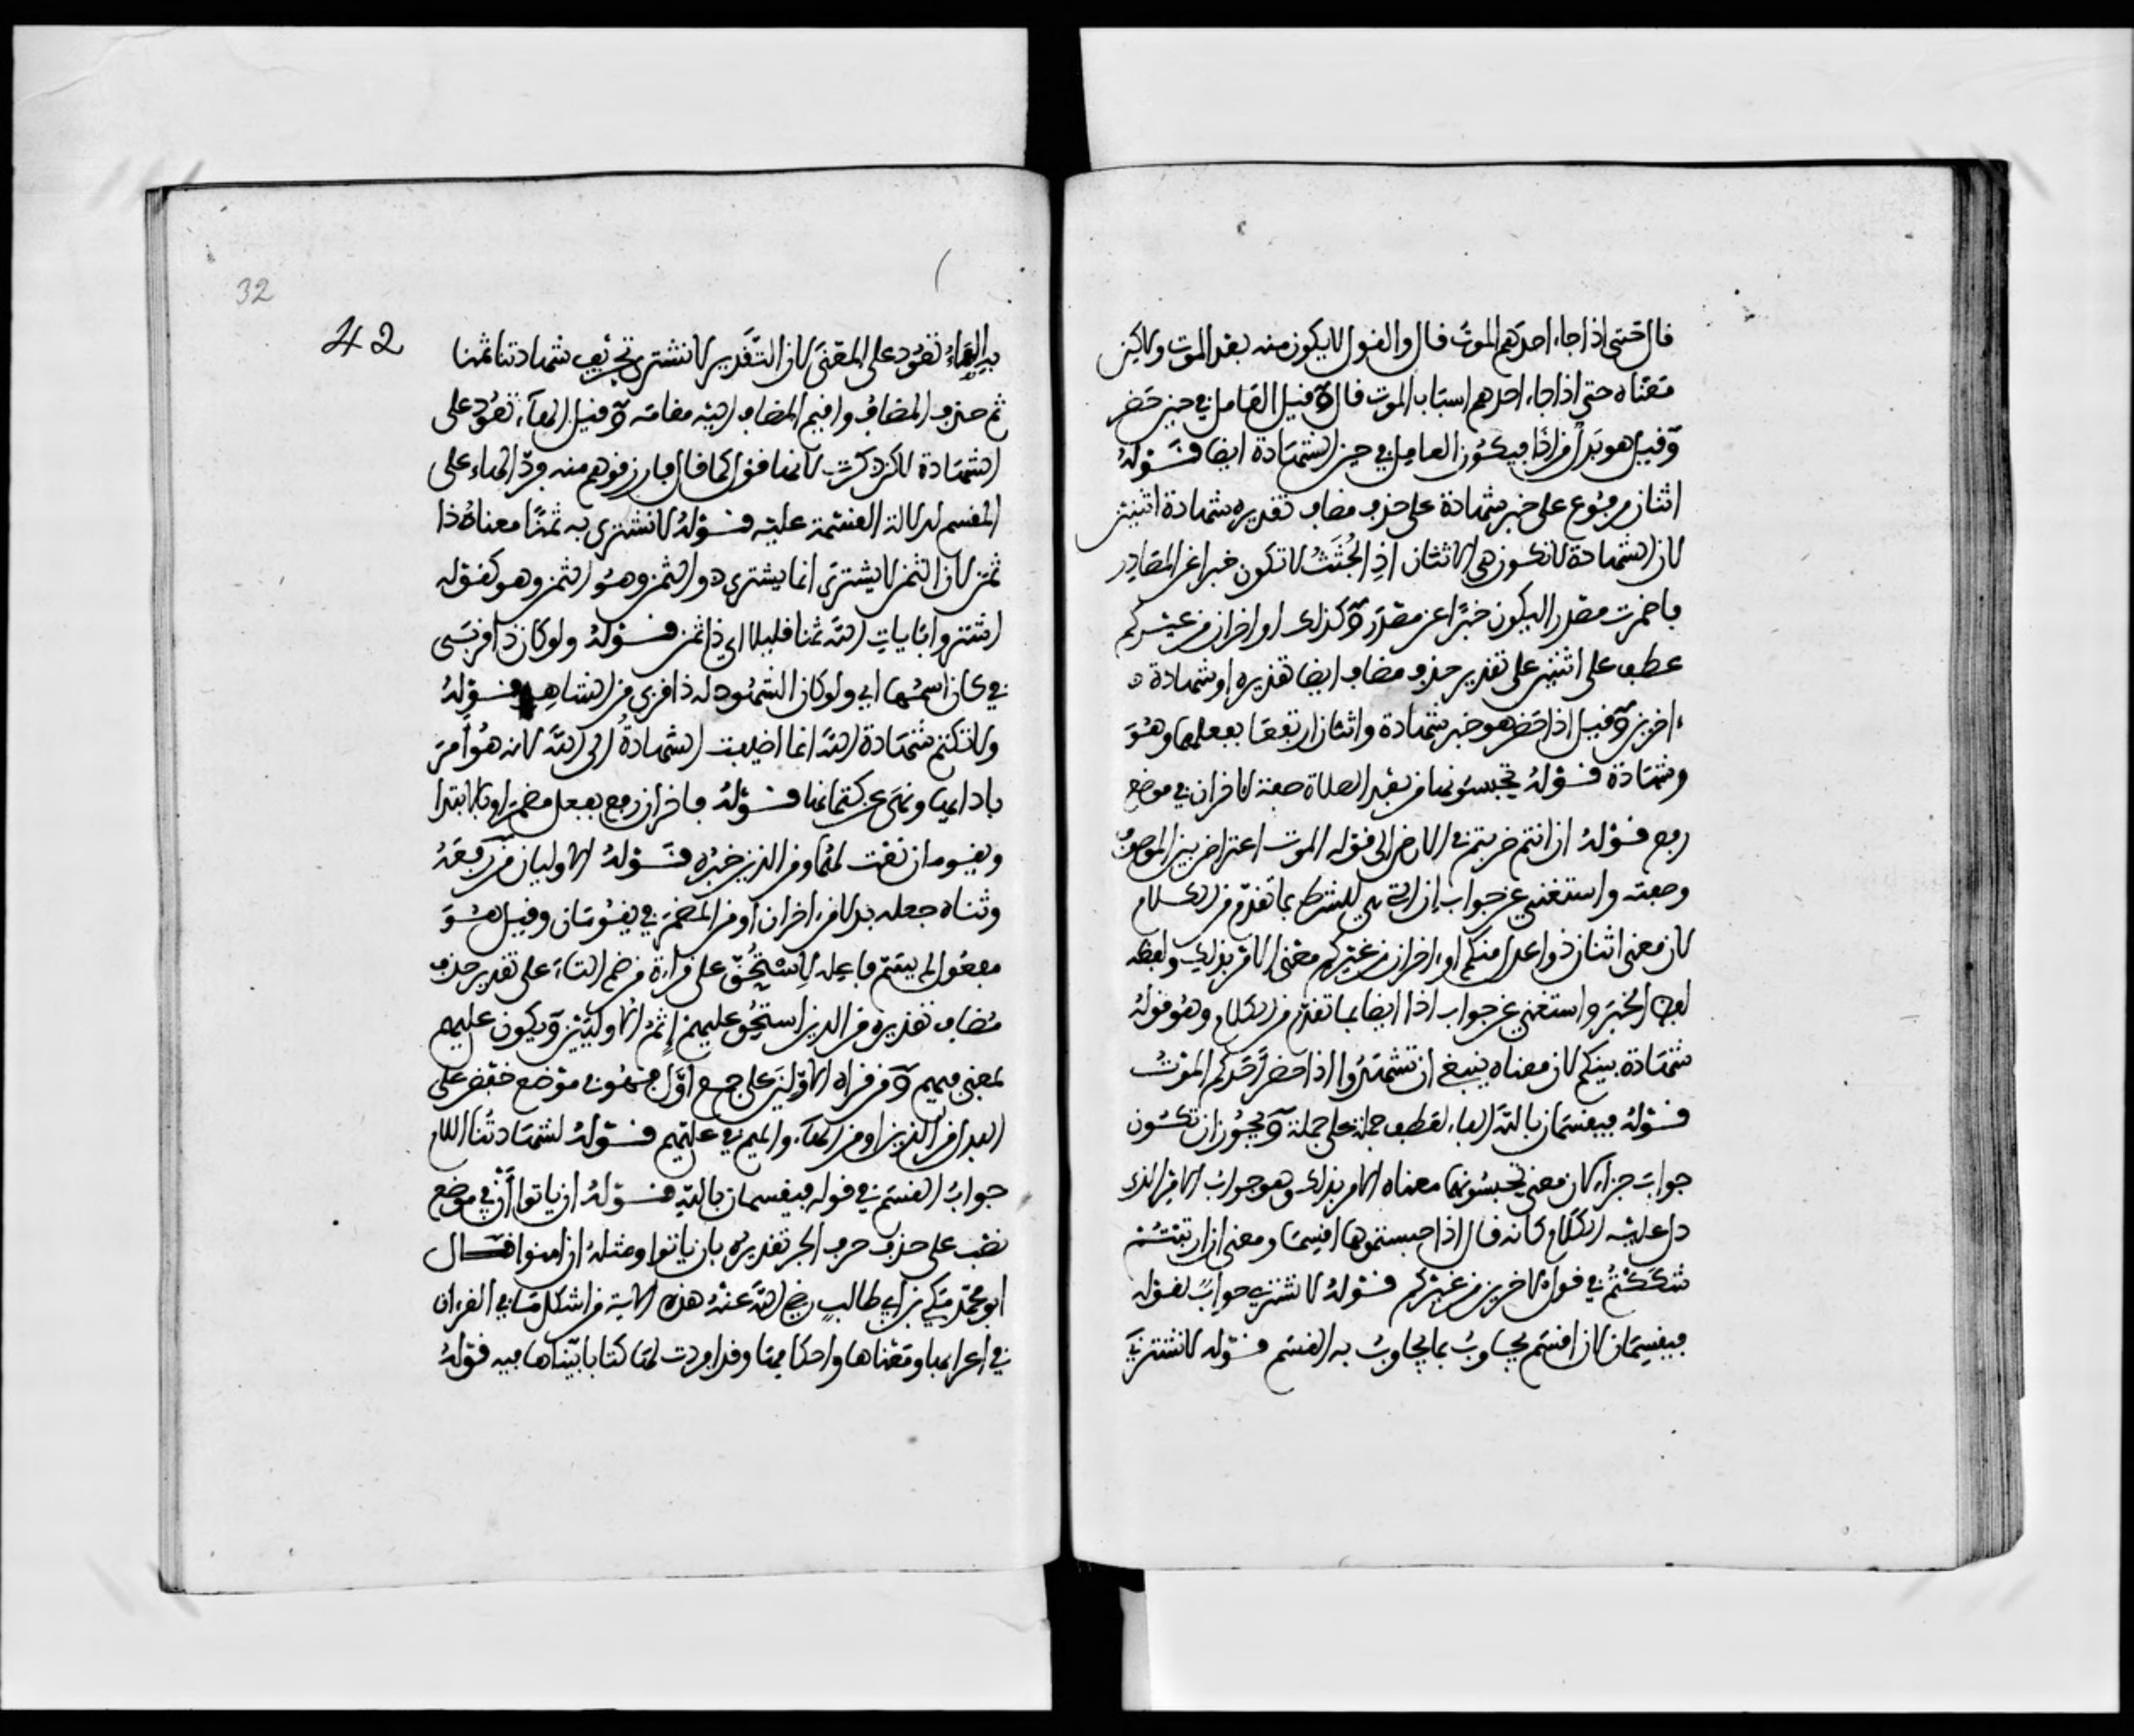 قال حتى اذا جاء احدكم الموت قال والقول لا يكون منه بعد الموت ولاكن
معناه حتى اذا جاء احدهم اسباب الموت قال وقيل العامل في حين حضر
وقيل هو بدل من اذا فيكون العامل في حين الشهادة ايضا قوله
اثنان مرفوع على خبر شهادة على حذف مضاف تقديره شهادة اثنين
لان الشهادة لا تكون هي الاثنان اذ الجثث لا تكون خبرا عن المصادر
فاضمرت مصدرا ليكون خبرا عن مصدر وكذلك او اخران من غيركم
عطف على اثنين على تقدير حذف مضاف ايضا تقديره او شهادة
ءاخرين وقيل اذا حضر هو خبر شهادة واثنان ارتفعا بفعلهما وهو
وشهادة قوله تحبسونهما من بعد الصلاة صفة لاخران في موضع
رفع قوله ان انتم ضربتم في الارض الى قوله الموت اعتراض بين الموصوف
وصفته واستغنى عن جواب ان التي للشرط بما تقدم من الكلام
لان معنى اثنان ذوا عدل منكم او ءاخران من غيركم معنى الامر بذلك ولفظه
لفظ الخبر واستغنى عن جواب اذا ايضا بما تقدم من الكلام وهو قوله
شهادة بينكم لان معناه ينبغي ان تشهدوا اذا حضر احدكم الموت
قوله فيقسمان بالله الفاء لعطف جملة على جملة ويجوز ان تكون
جواب جزاء لان معنى تحبسونهما معناه الامر بذلك وهو جواب الامر الذي
دل عليه الكلام كانه قال اذا حبستموهما اقسما ومعنى ان ارتبتم
شككتم في قول الاخرين من غيركم قوله لا نشتري جواب لقوله
فيقسمان لان اقسم يجاوب بما يجاوب به القسم قوله لا نشتري
32
42
به الهاء تعود على المعنى لان التقدير لا نشتري بتحريف شهادتنا ثمنا
ثم حذف المضاف واقيم المضاف اليه مقامه وقيل الهاء تعود على
الشهادة لاكن ذكرت لانها قول كما قال فارزقوهم منه فرد الهاء على
المقسم لدلالة القسمة عليه قوله لا نشتري به ثمنا معناه ذا
ثمن لان الثمن لا يشترى انما يشترى ذو الثمن وهو المثمن وهو كقوله
اشتروا بئايات الله ثمنا قليلا اي ذا ثمن قوله ولو كان ذا قربى
في كان اسمها اي ولو كان المشهود له ذا قربى من الشاهد قوله
ولا نكتم شهادة الله انما اضيفت الشهادة الى الله لانه هو امر
بادائها ونهى عن كتمانها قوله فاخران رفع بفعل مضمر او بالابتدا
ويقومان نعت لهما ومن الذين خبره قوله الاوليان من رفعه
وثناه جعله بدلا من اخران او من المضمر في يقومان وقيل هو
مفعول لم يسم فاعله لاستحق على قراءة من ضم التاء على تقدير حذف
مضاف تقديره من الذين استحق عليهم اثم الاوليين ويكون عليهم
بمعنى فيهم ومن قراه الاولين على جمع اول فهو في موضع خفض على
البدل من الذين او من الهاء والميم في عليهم قوله لشهادتنا اللام
جواب القسم في قوله فيقسمان بالله قوله ان ياتوا ان في موضع
نصب على حذف حرف الجر تقديره بان ياتوا ومثله ان امنوا قال
ابو محمد مكي بن ابي طالب رضي الله عنه هذه الاية من اشكل ما في القرءان
في اعرابها ومعناها واحكامها وقد افردت لها كتابا بيناها فيه قوله